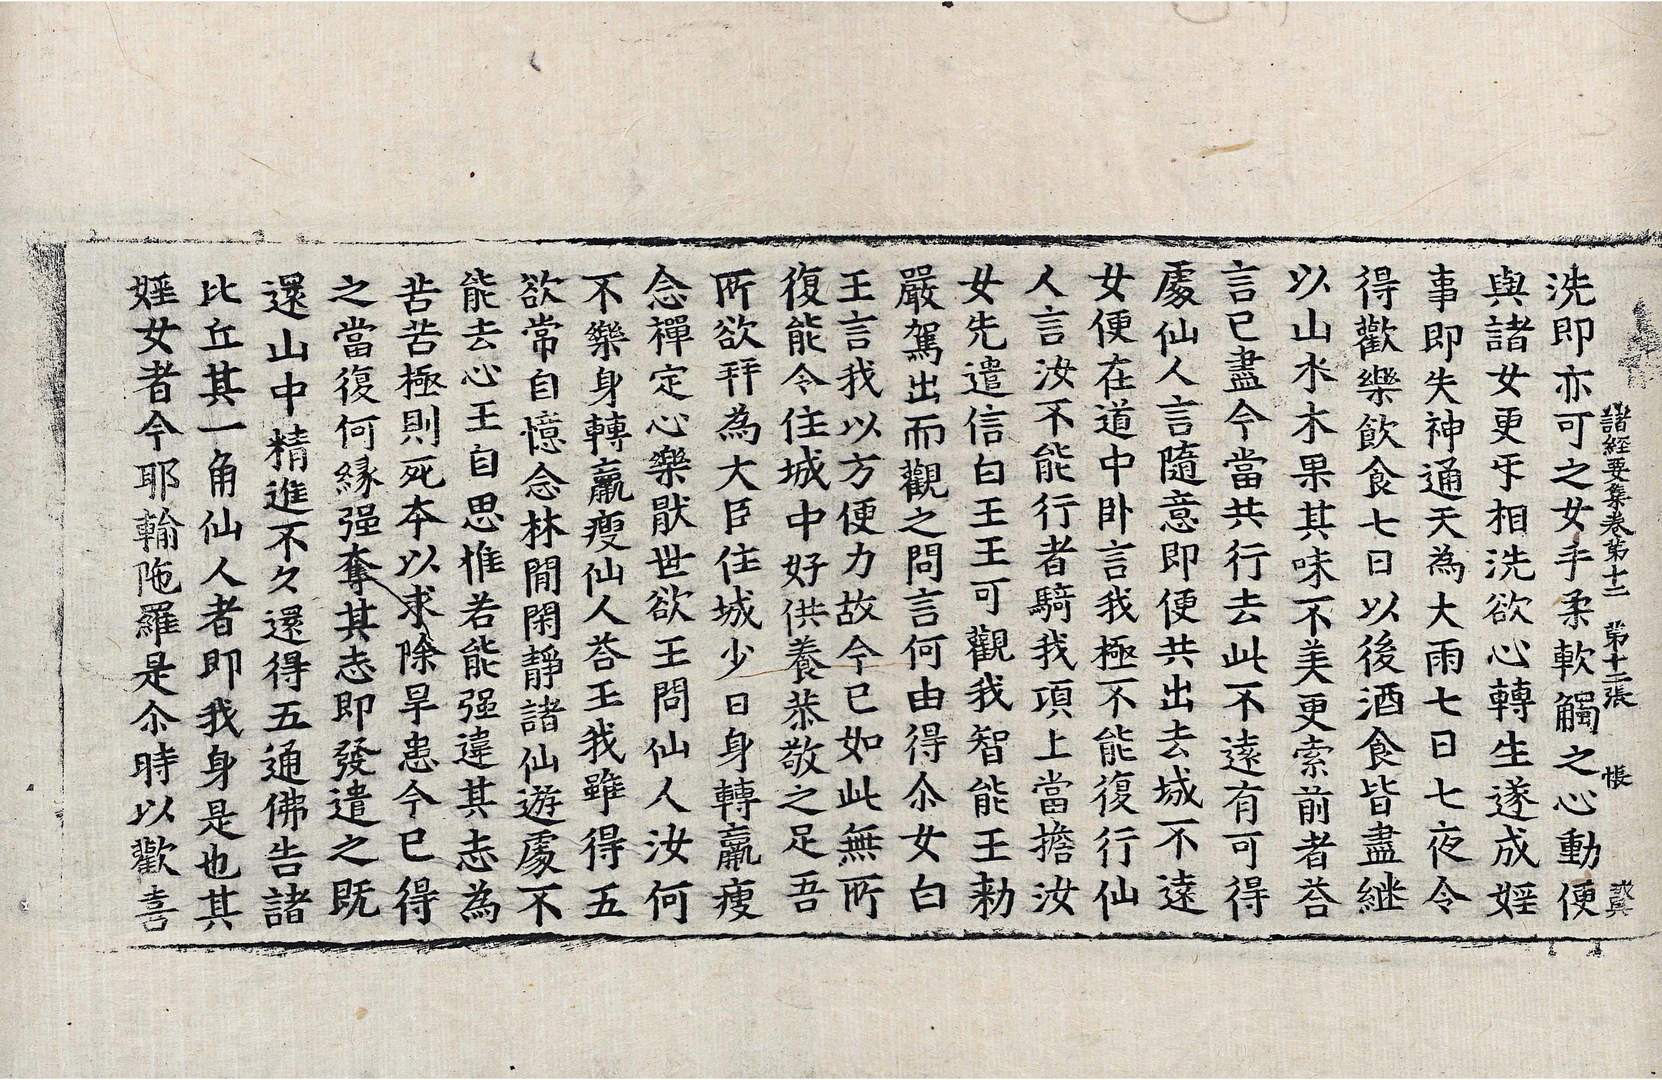 諸經要集卷第十二 第十二張 悵
洗即亦可之女手柔軟觸之心動便
與諸女更㸦相洗欲心轉生遂成婬
事即失神通天為大雨七日七夜令
得歡樂飲食七日以後酒食皆盡継
以山水木果其味不美更索前者荅
言已盡今當共行去此不遠有可得
處仙人言隨意即便共出去城不遠
女便在道中卧言我極不能復行仙
人言汝不能行者騎我項上當擔汝
女先遣信白王王可觀我智能王勑
嚴駕出而觀之問言何由得尒女白
王言我以方便力故今已如此無所
復能令住城中好供養恭敬之足吾
所欲拜為大臣住城少日身轉羸瘦
念禪定心樂猒世欲王問仙人汝何
不樂身轉羸瘦仙人荅王我雖得五
欲常自憶念林間閑靜諸仙遊處不
能去心王自思惟若能强違其志為
苦苦極則死夲以求除旱患今已得
之當復何緣强奪其志即發遣之既
還山中精進不久還得五通佛告諸
比丘其一角仙人者即我身是也其
婬女者今耶輸陁羅是尒時以歡喜